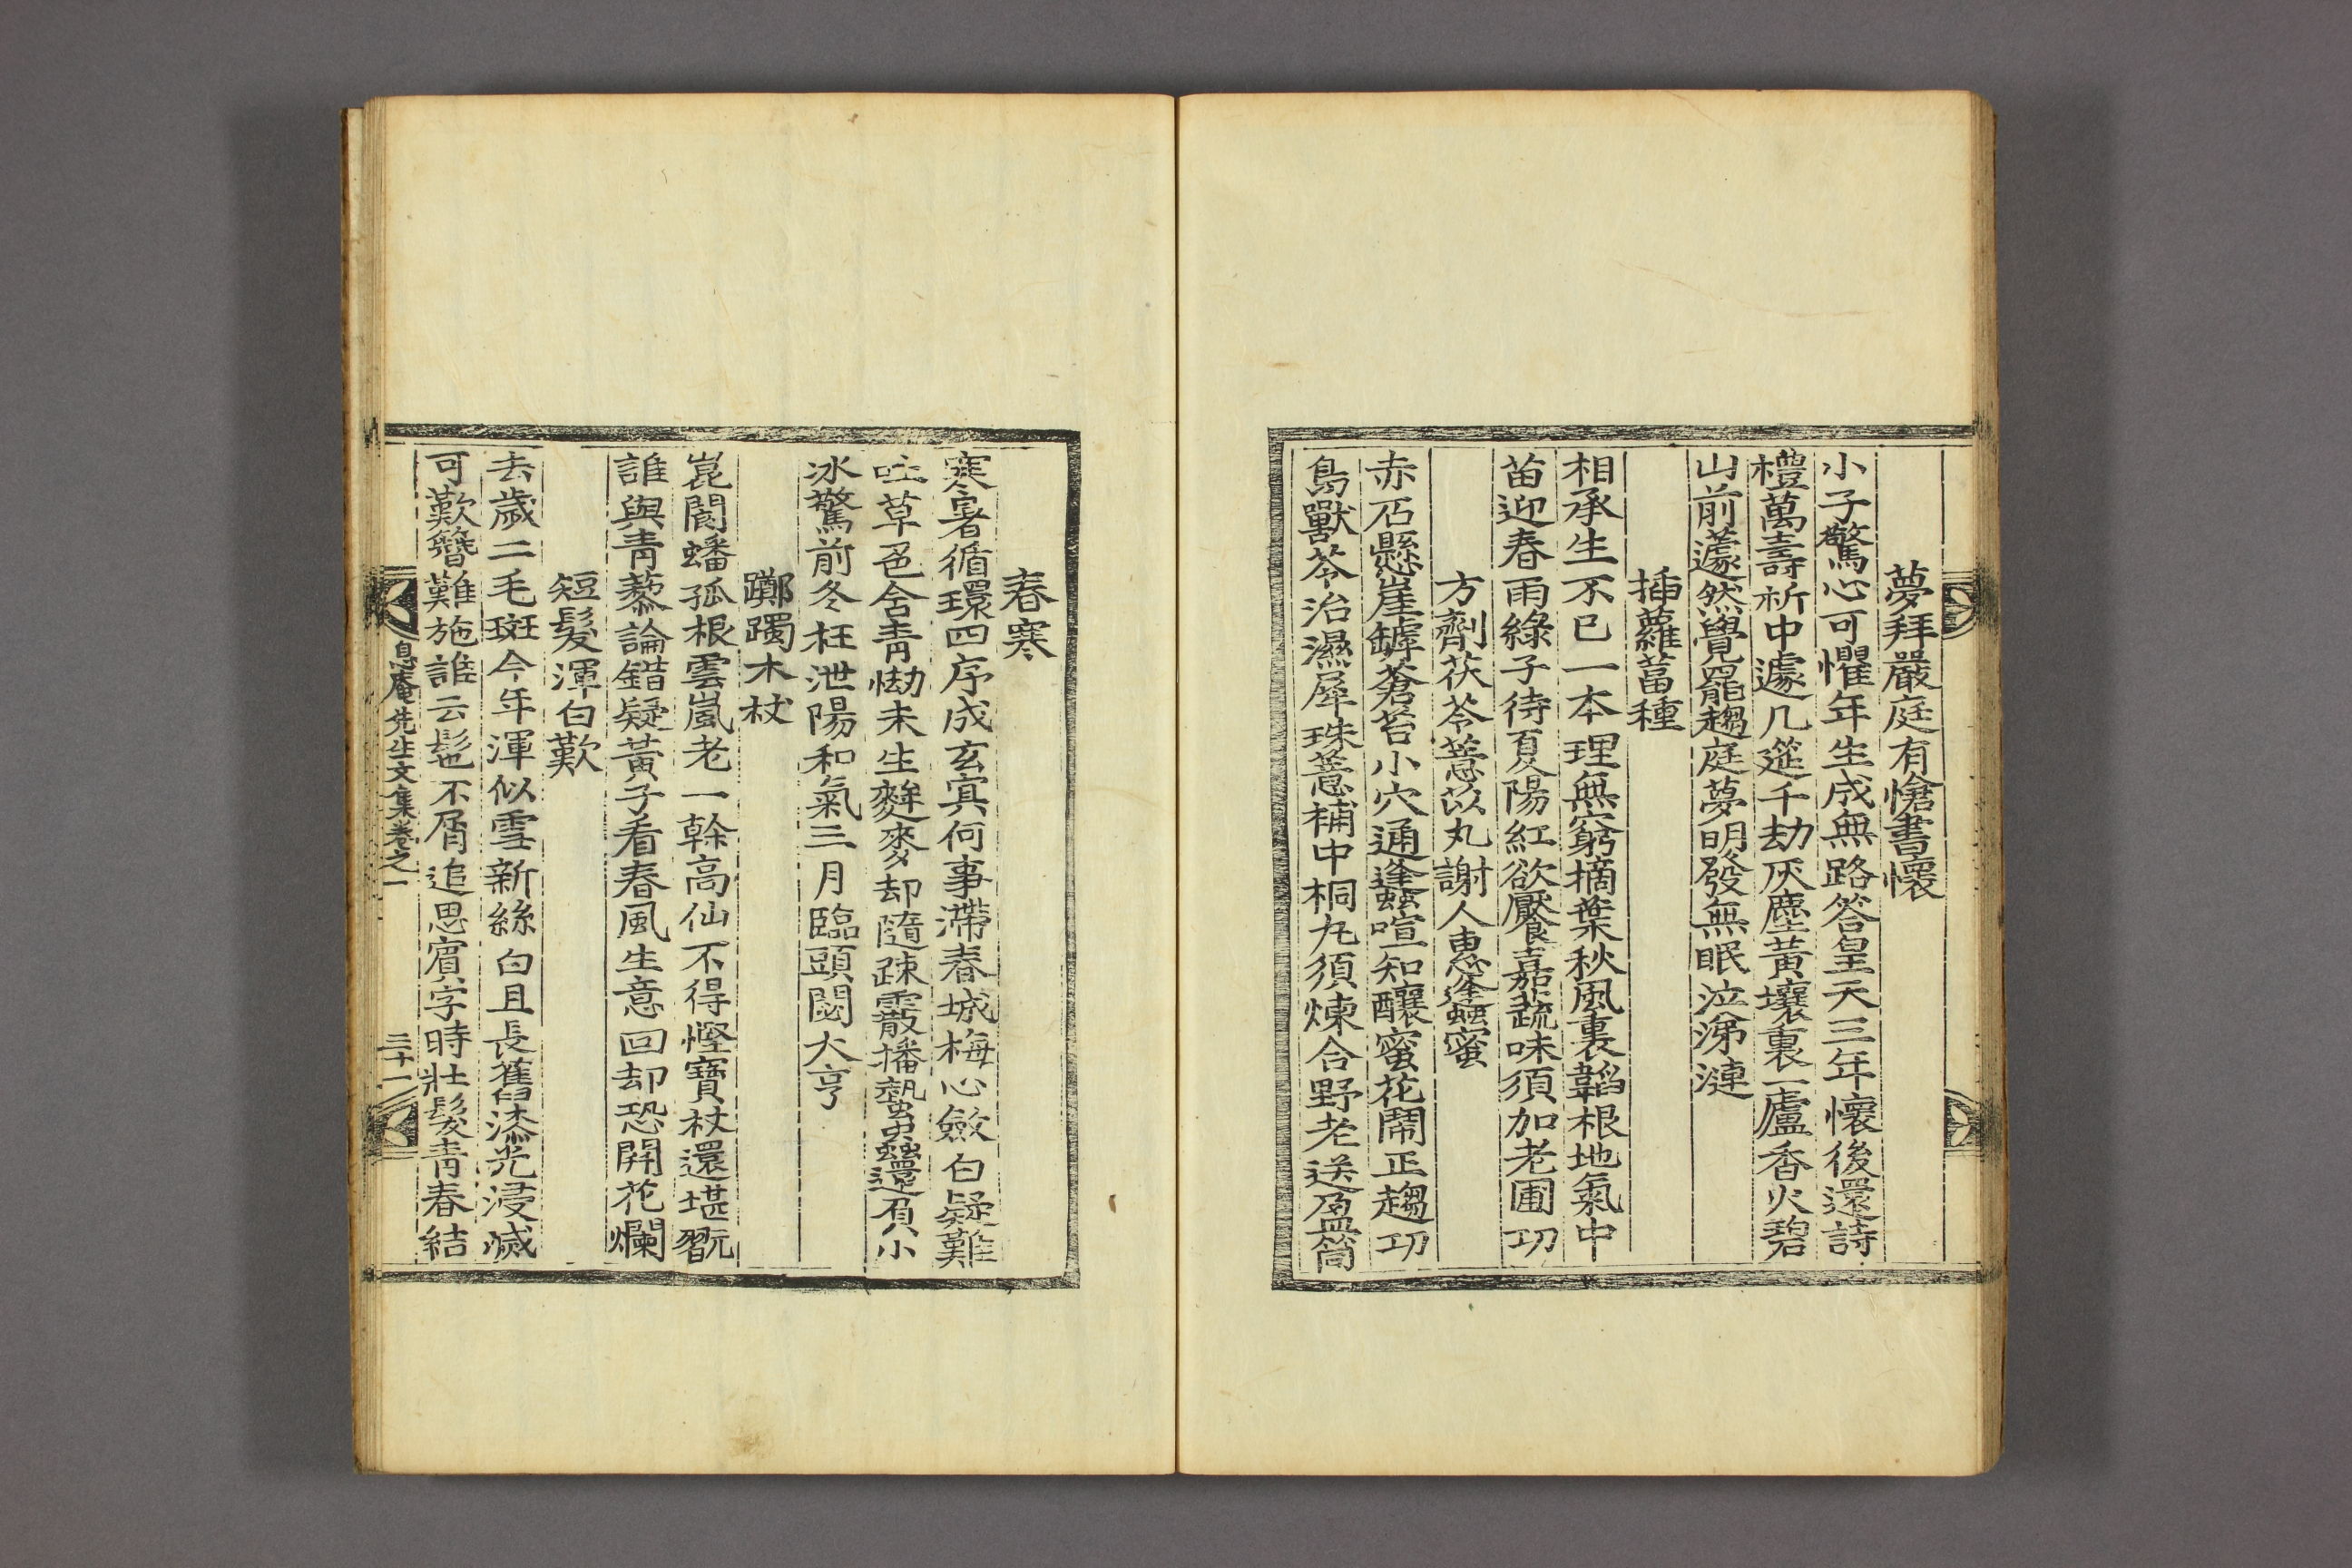 夢拜嚴庭有愴書懷
小子驚心可懼年生成無路答皇天三年懷後還詩
禮萬壽祈中遽几筵千劫灰塵黃壤裏一爐香火碧
山前蘧然覺罷趨庭夢明發無眠泣涕漣
插蘿葍種
相承生不已一本理無窮摘葉秋風裏韜根地氣中
苗迎春雨綠子待夏陽紅欲饜嘉蔬味須加老圃功
方劑茯苓薏苡丸謝人惠蜂蜜
赤石懸崖罅蒼苔小穴通蜂喧知釀蜜花鬧正趨功
鳥獸苓治濕犀珠薏補中桐丸須煉合野老送盈筒
春寒
寒暑循環四序成玄冥何事滯春城梅心斂白疑難
吐草色含青怮未生麰麥却隨疎霰播蟄蟲還負小
冰驚前冬枉泄陽和氣三月臨頭閟大亨
躑躅木杖
崑閬蟠孤根雲嵐老一榦高仙不得慳寶杖還堪翫
誰與靑藜論錯疑黃子看春風生意回却恐開花爛
短髮渾白歎
去歲二毛斑今年渾似雪新絲白且長舊漆光浸滅
可歎簪難施誰云髢不屑追思賓字時壯髮靑春結
息庵先生文集卷之一
三十一